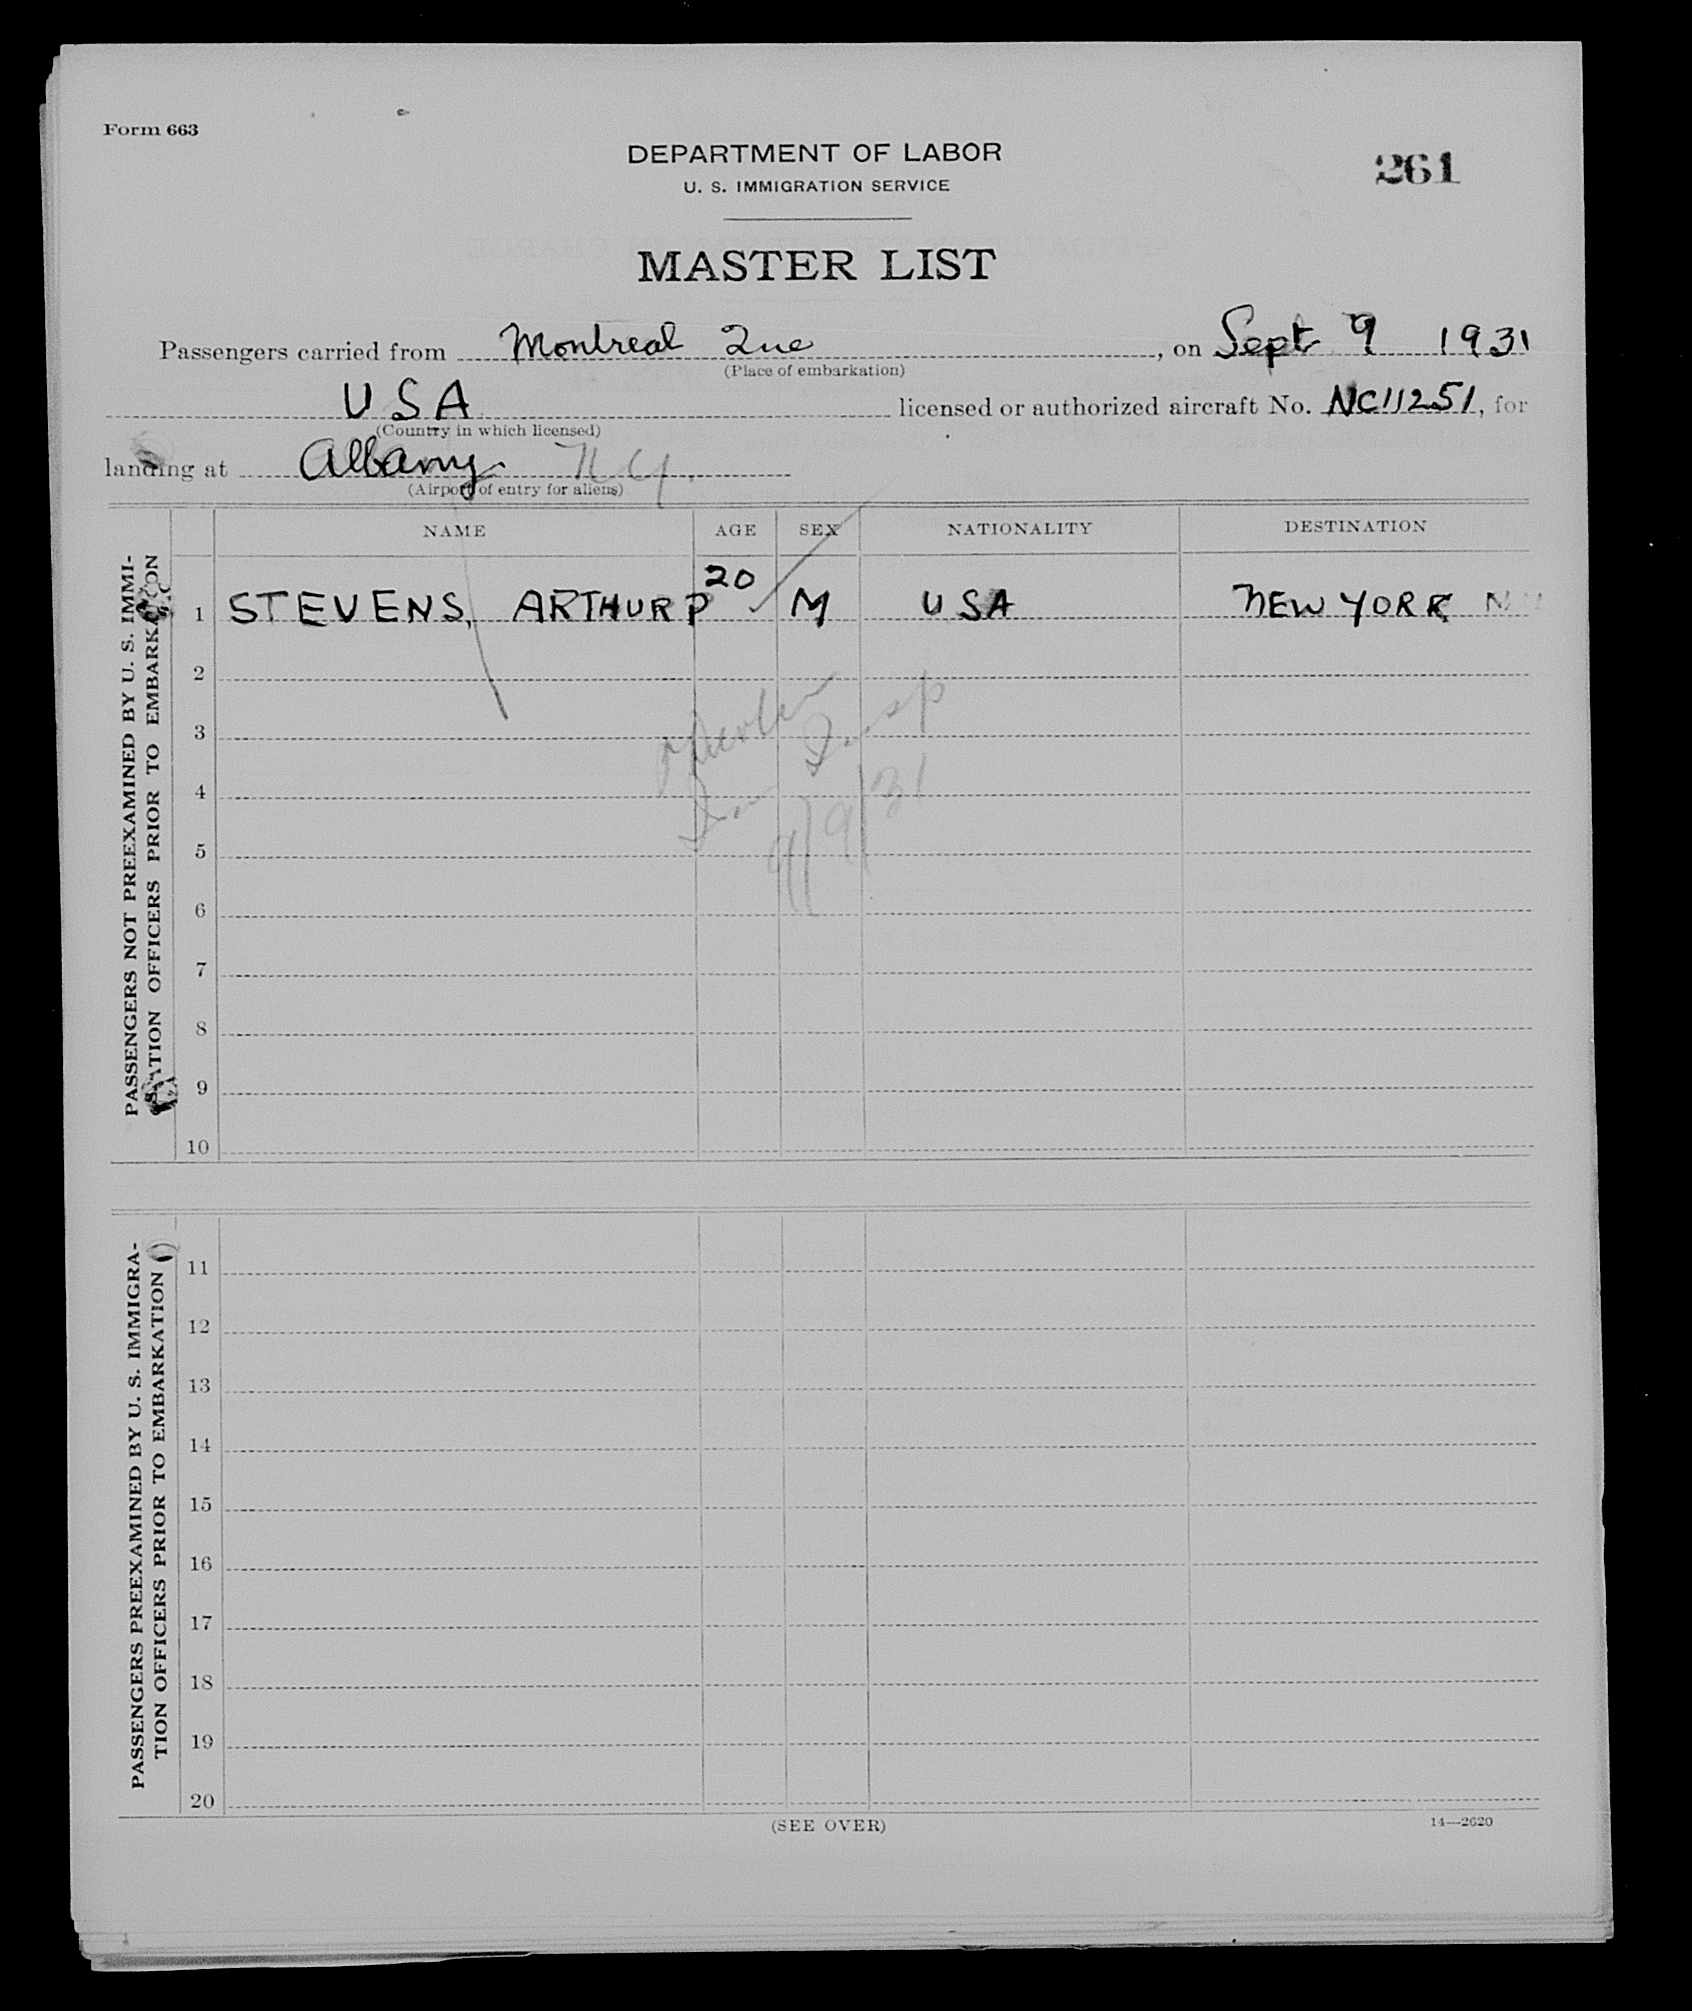 Form 663
DEPARTMENT OF LABOR
261
U. S. IMMIGRATION SERVICE
MASTER LIST
Passengers carried from Montreal Que , on Sept 9 1931
(Place of embarkation)
USA licensed or authorized aircraft No. NC11251, for
(Country in which licensed)
landing at Albany. N Y.
(Airport of entry for aliens)
NAME AGE SEX NATIONALITY DESTINATION
PASSENGERS NOT PREEXAMINED BY U. S. IMMI-
GRATION OFFICERS PRIOR TO EMBARKATION
1 STEVENS, ARTHUR P 20 M USA NEW YORK N
2
3
4
Imm Insp
5
9/9/31
6
7
8
9
10
PASSENGERS PREEXAMINED BY U. S. IMMIGRA-
TION OFFICERS PRIOR TO EMBARKATION
11
12
13
14
15
16
17
18
19
20
(SEE OVER)
14—2620